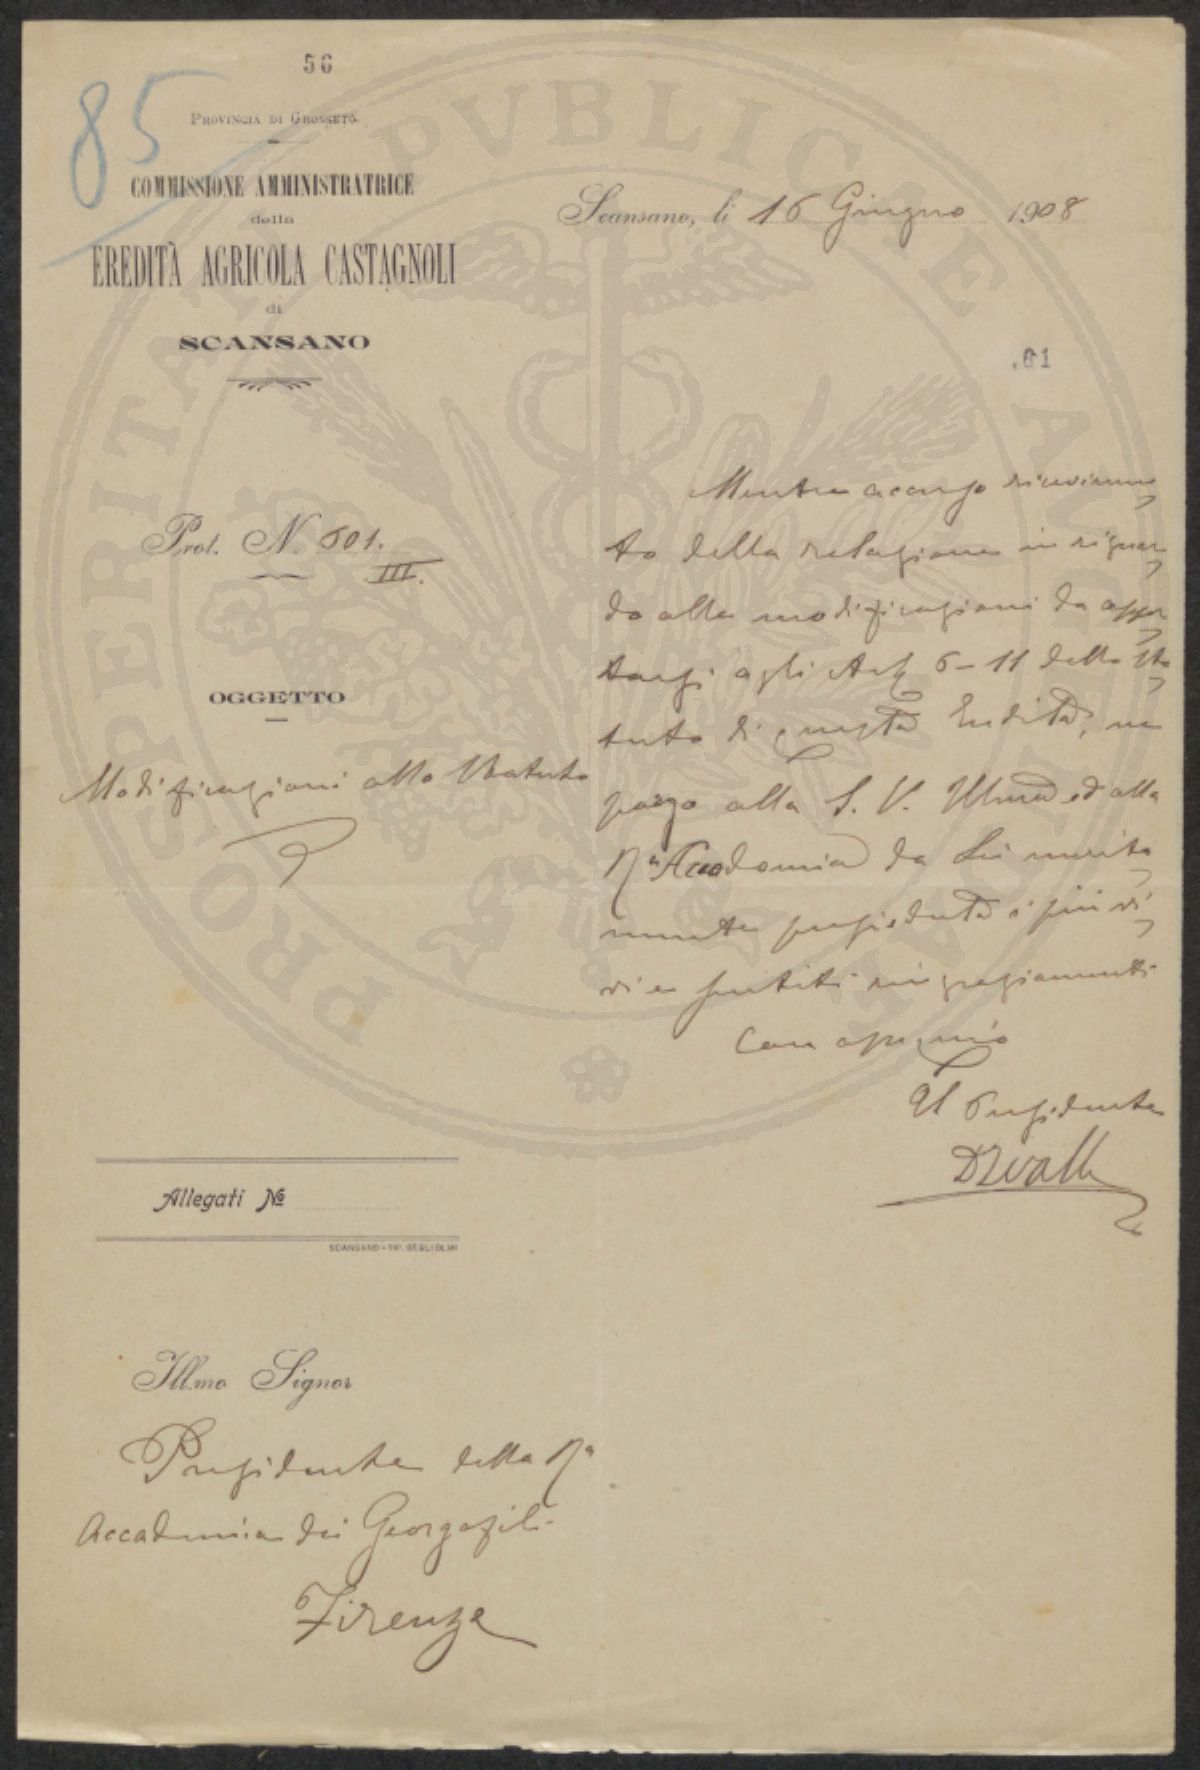 56
85
PROVINCIA DI GROSSETO
COMMISSIONE AMMINISTRATRICE
della
EREDITÀ AGRICOLA CASTAGNOLI
di
SCANSANO
Scansano, li 16 Giugno 1908
.61
Prot. N. 601.
III.
OGGETTO
Modificazioni allo Statuto
Mentre accuso ricevimen
to della relazione in riguar
do alle modificazioni da appor
tarsi agli Art. 6-11 dello Sta
tuto di questa Eredità, ne
porgo alla S. V. Ill.ma ed alla
Rª Accademia da Lei merita
mente presieduta i più vi
vi e sentiti ringraziamenti
Con ossequio
Il Presidente
Allegati Nº
SCANSANO - TIP. DEGLI OLMI
Ill.mo Signor
Presidente della Rª
Accademia dei Georgofili
Firenze
PROSPERITATI PVBLICAE AVGENDAE